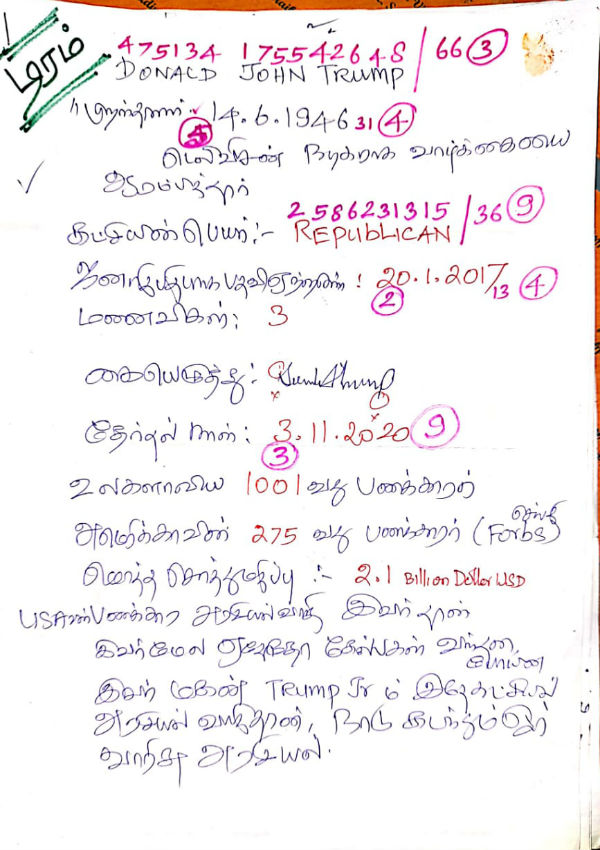 டிரம்
475134 17554 2648 / 66 3
DONALD JOHN TRUMP
பிறந்தநாள்:- 14.6.1946 31 4
5
டெலிவிசன் நடிகராக வாழ்க்கையை
ஆரம்பித்தார்
2586231315 / 36 9
கட்சியின் பெயர்:- REPUBLICAN
ஜனாதிபதியாக பதவிஏற்றநாள்: 20.1.2017/13 4
2
மனைவிகள்: 3
கையெழுத்து:-
தேர்தல் நாள்: 3.11.2020 9
3
உலகளாவிய 1001 வது பணக்காரர்
அமெரிக்காவின் 275 வது பணக்காரர் (Forbs செய்தி)
மொத்த சொத்துமதிப்பு :- 2.1 Billion Doller USD
USAன் பணக்கார அரசியல்வாதி இவர்தான்
இவர்மேல் ஏதேதோ கேஸ்கள் வந்தன
போயின
இவர் மகன் Trump Jr ம் இதேகட்சியில்
அரசியல் வாதிதான், நாடு கடந்தும் இது
வாரிசு அரசியல்.